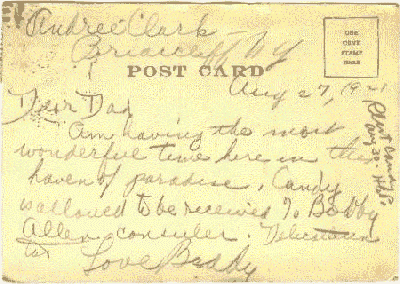 Andree Clark -
Briarcliff NY
USE
ONE CENT
STAMP
HERE
POST CARD
Aug 27, 1921
Dear Dad
Am having the most
wonderful time here in this
haven of paradise. Candy
is allowed to be received to Bobby
Allen consuler.
Love Baddy